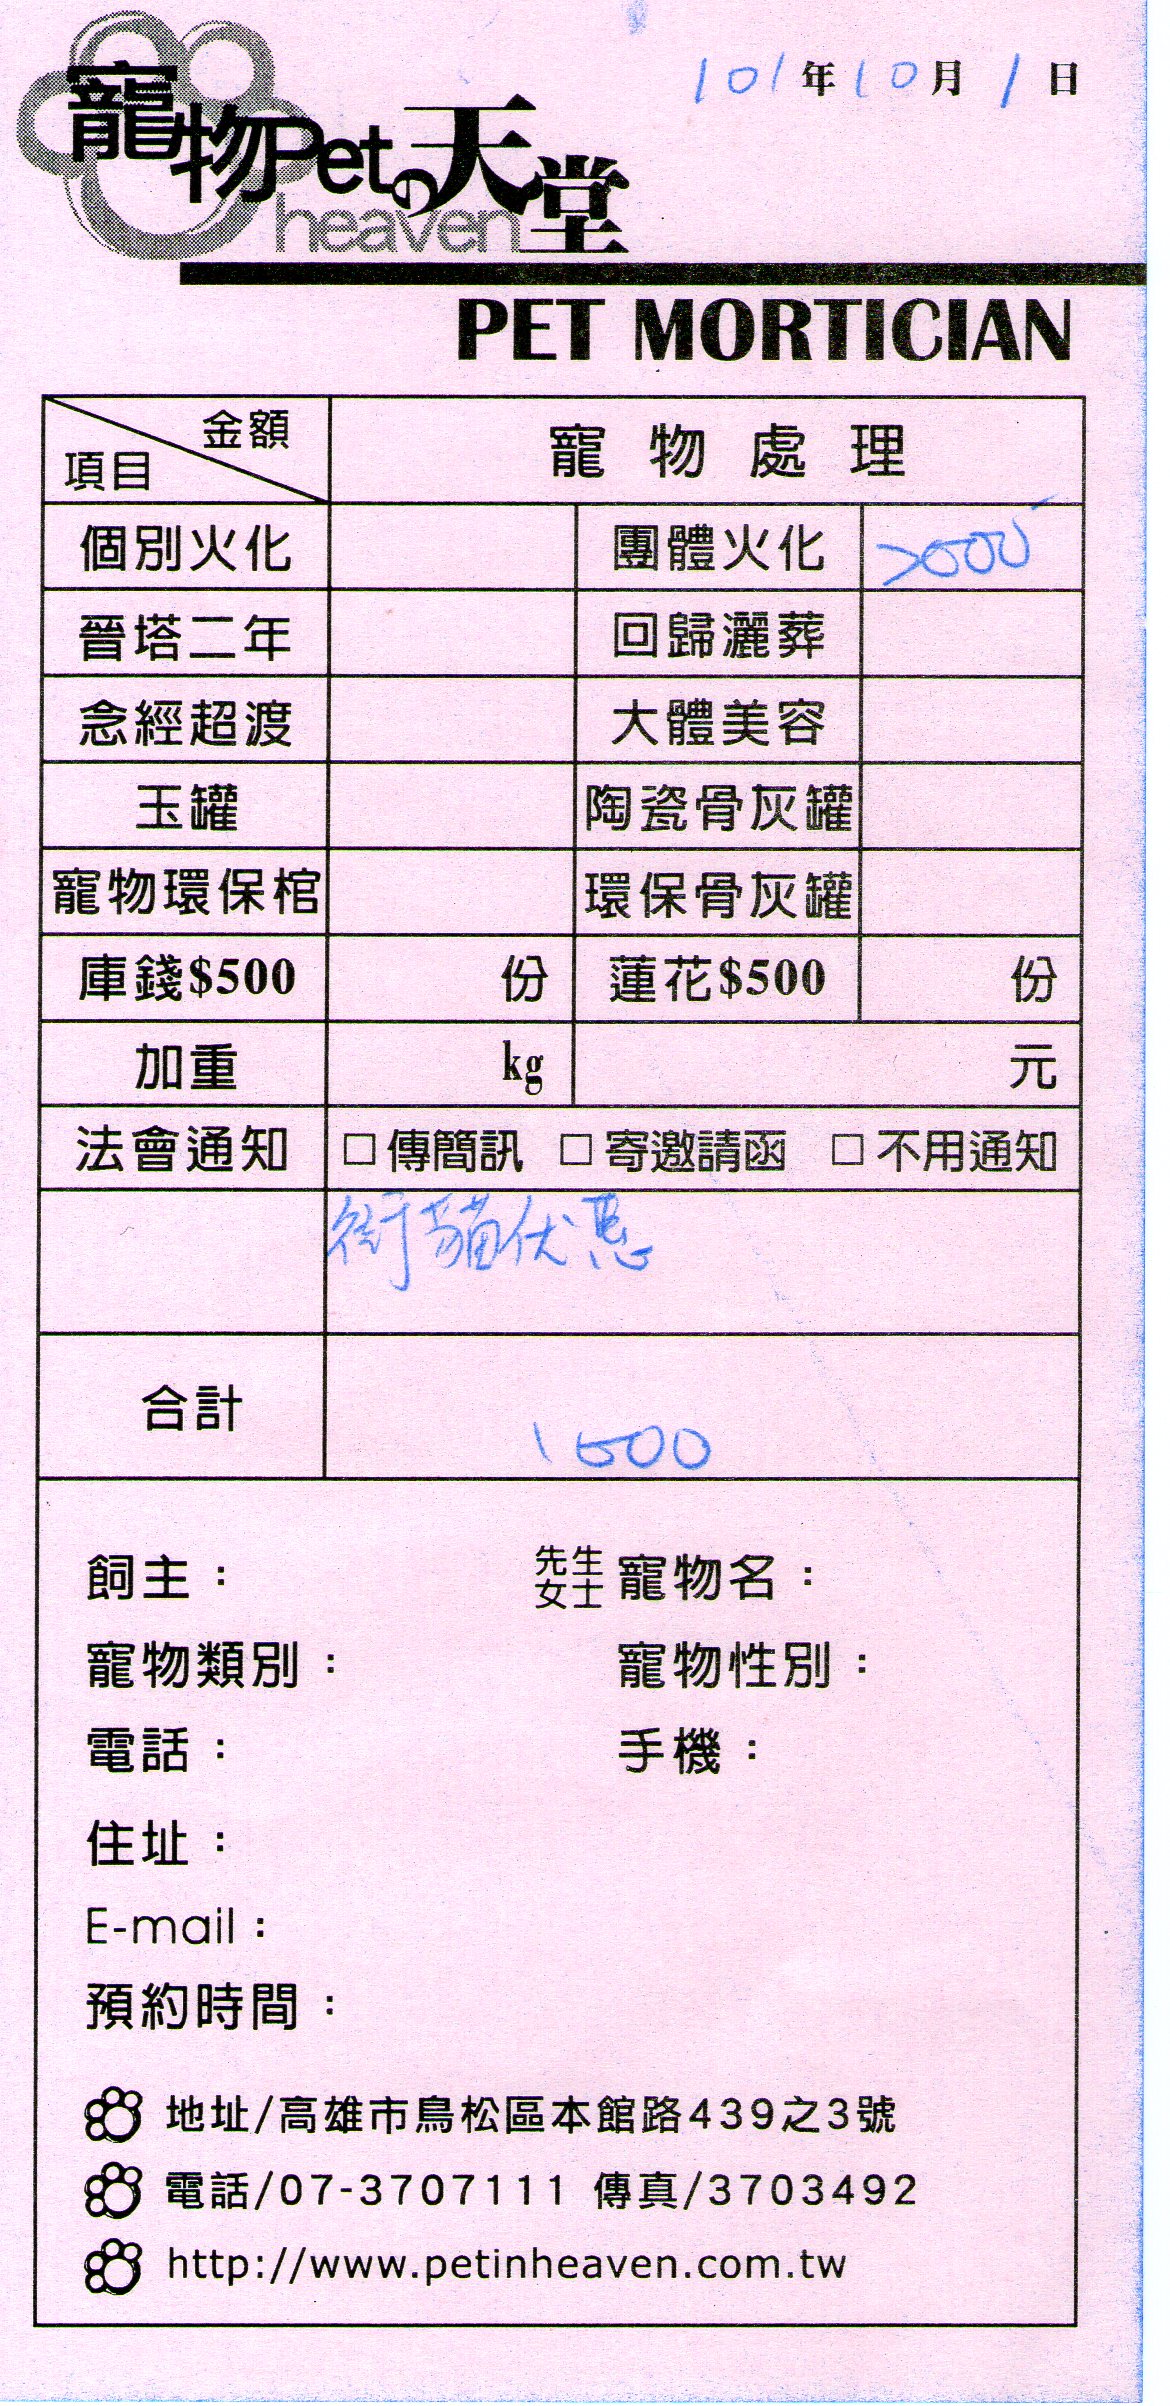 101年10月1日
寵物Petの天堂
heaven
PET MORTICIAN
金額
項目
寵物處理
個別火化 團體火化 2000
晉塔二年 回歸灑葬
念經超渡 大體美容
玉罐 陶瓷骨灰罐
寵物環保棺 環保骨灰罐
庫錢$500 份 蓮花$500 份
加重 kg 元
法會通知 □傳簡訊 □寄邀請函 □不用通知
街貓优惠
合計 1500
飼主： 先生女士 寵物名：
寵物類別： 寵物性別：
電話： 手機：
住址：
E-mail：
預約時間：
地址/高雄市鳥松區本館路439之3號
電話/07-3707111 傳真/3703492
http://www.petinheaven.com.tw